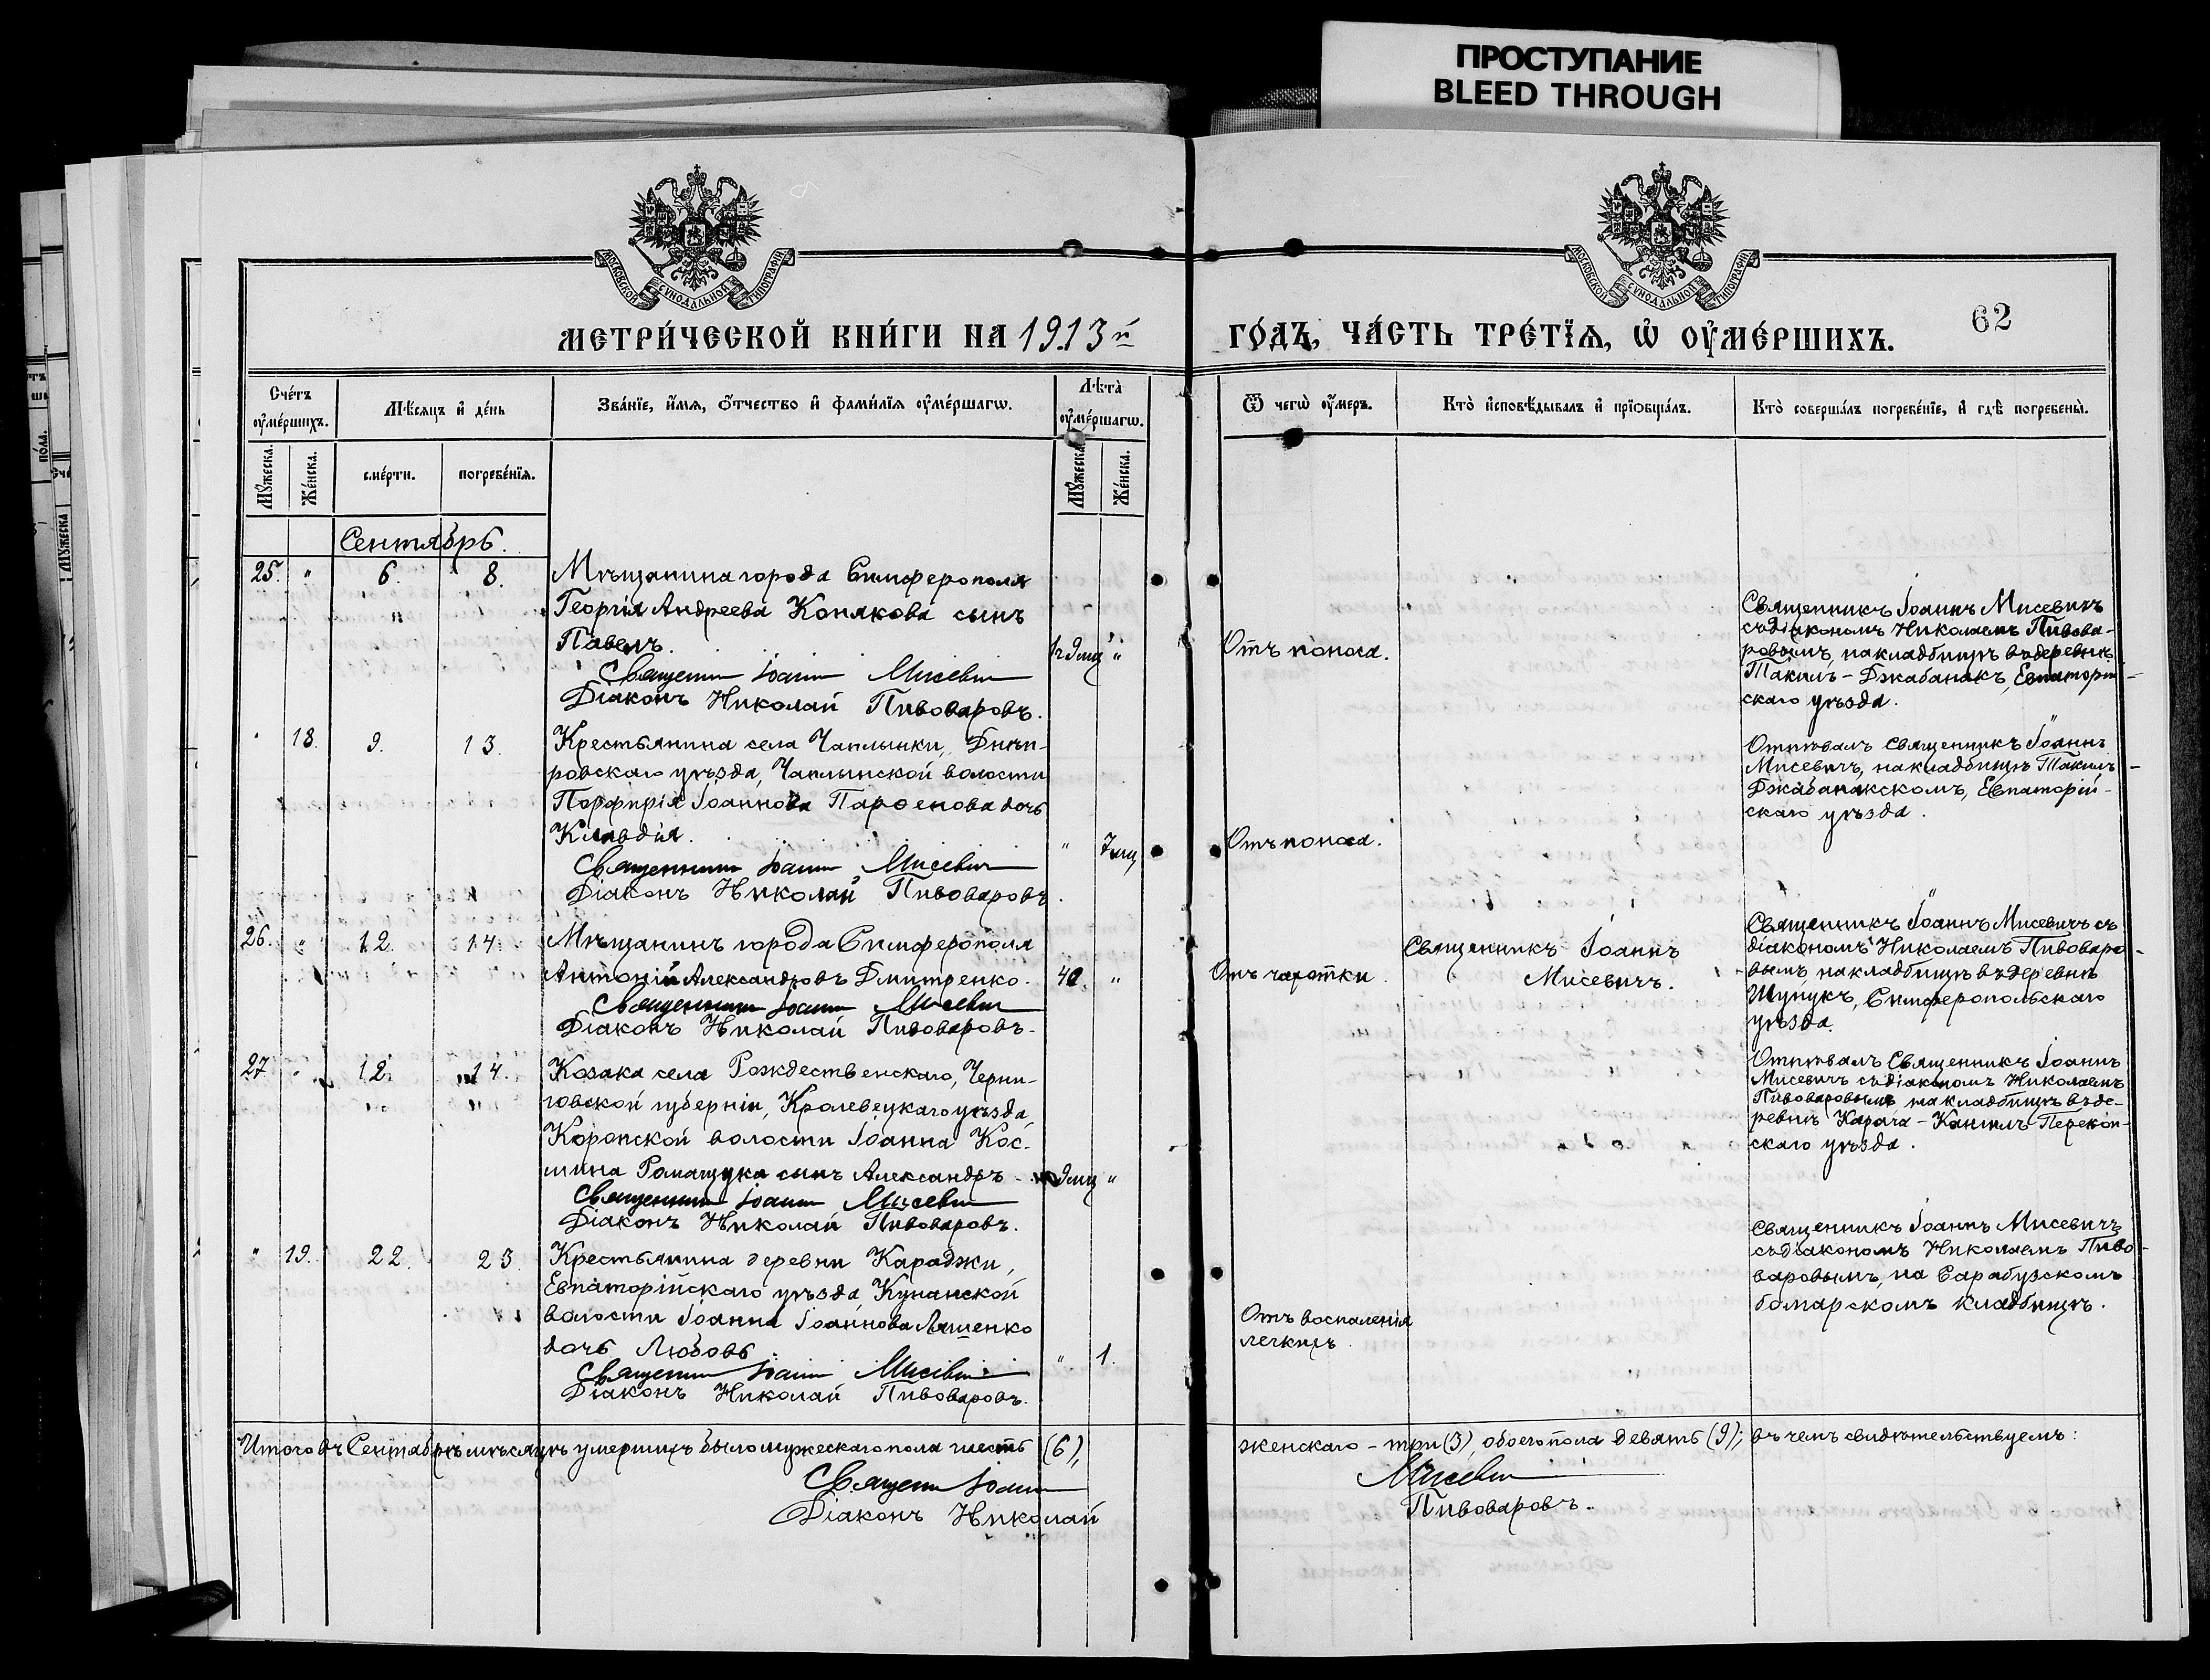 ПРОСТУПАНИЕ
BLEED THROUGH
МОСКОВСКОЙ СѴНОДАЛЬНОЙ ТИПОГРАФІИ
МОСКОВСКОЙ СѴНОДАЛЬНОЙ ТИПОГРАФІИ
МЕТРИ́ЧЕСКОЙ КНИ́ГИ НА 1913й ГО́ДЪ, ЧА́СТЬ ТРЕ́ТЇѦ, Ѡ҆ ОУ҆МЕ́РШИХЪ.
62
Сче́тъ оу҆ме́ршихъ.
Мѣ́сѧцъ и҆ де́нь
Зва́нїе, и҆́мѧ, ѻ҆́тчество и҆ фами́лїѧ оу҆ме́ршагѡ.
Лѣ́та оу҆ме́ршагѡ.
Ѿ чегѡ̀ оу҆́меръ.
Кто̀ и҆сповѣ́дывалъ и҆ прїѡбща́лъ.
Кто̀ соверша́лъ погребе́нїе, и҆ гдѣ̀ погребены̀.
Мꙋ́жеска.
Же́нска.
сме́рти.
погребе́нїѧ.
Мꙋ́жеска.
Же́нска.
Сентябрь.
25. " 6. 8.
Мѣщанина города Симферополя
Георгія Андреева Конякова сынъ
Павелъ.
"
Отъ поноса.
Священникъ Іоаннъ Мисевичъ
Діаконъ Николай Пивоваровъ.
Священникъ Іоаннъ Мисевичъ
съ діакономъ Николаемъ Пивова-
ровымъ, на кладбищѣ въ деревнѣ
Такилъ-Джабанакъ, Евпаторій-
скаго уѣзда.
" 18. 9. 13.
Крестьянина села Чаплынки, Днѣп-
ровскаго уѣзда, Чаплынской волости
Порфирія Іоаннова Парѳенова дочь
Клавдія.
" 7 мѣц
Отъ поноса.
Священникъ Іоаннъ Мисевичъ
Діаконъ Николай Пивоваровъ.
Отпѣвалъ Священникъ Іоаннъ
Мисевичъ, на кладбищѣ Такилъ-
Джабанакскомъ, Евпаторій-
скаго уѣзда.
26. " 12. 14.
Мѣщанинъ города Симферополя
Антоній Александровъ Дмитренко.
40. "
Отъ чахотки.
Священникъ Іоаннъ
Мисевичъ.
Священникъ Іоаннъ Мисевичъ
Діаконъ Николай Пивоваровъ.
Священникъ Іоаннъ Мисевичъ съ
діакономъ Николаемъ Пивоваро-
вымъ на кладбищѣ въ деревнѣ
Шунукъ, Симферопольскаго
уѣзда.
27 " 12. 14.
Козака села Рождественскаго, Черни-
говской губерніи, Кролевецкаго уѣзда,
Коропской волости Іоанна Кос-
мина Ромащука сынъ Александръ
9 мѣц "
Священникъ Іоаннъ Мисевичъ
Діаконъ Николай Пивоваровъ.
Отпѣвалъ Священникъ Іоаннъ
Мисевичъ съ діакономъ Николаемъ
Пивоваровымъ на кладбищѣ въ де-
ревнѣ Карача-Кангилъ Перекоп-
скаго уѣзда.
" 19. 22. 23.
Крестьянина деревни Караджи,
Евпаторійскаго уѣзда, Кунанской
волости Іоанна Іоаннова Ляшенко
дочь Любовь.
" 1.
Отъ воспаленія
легкихъ.
Священникъ Іоаннъ Мисевичъ
Діаконъ Николай Пивоваровъ.
Священникъ Іоаннъ Мисевичъ
съ діакономъ Николаемъ Пиво-
варовымъ, на Сарабузскомъ
болгарскомъ кладбищѣ.
Итого въ Сентябрѣ мѣсяцѣ умершихъ было мужескаго пола шесть (6), женскаго - три (3), обоего пола девять (9); въ чемъ свидѣтельствуемъ:
Священникъ Іоаннъ Мисевичъ
Діаконъ Николай Пивоваровъ.